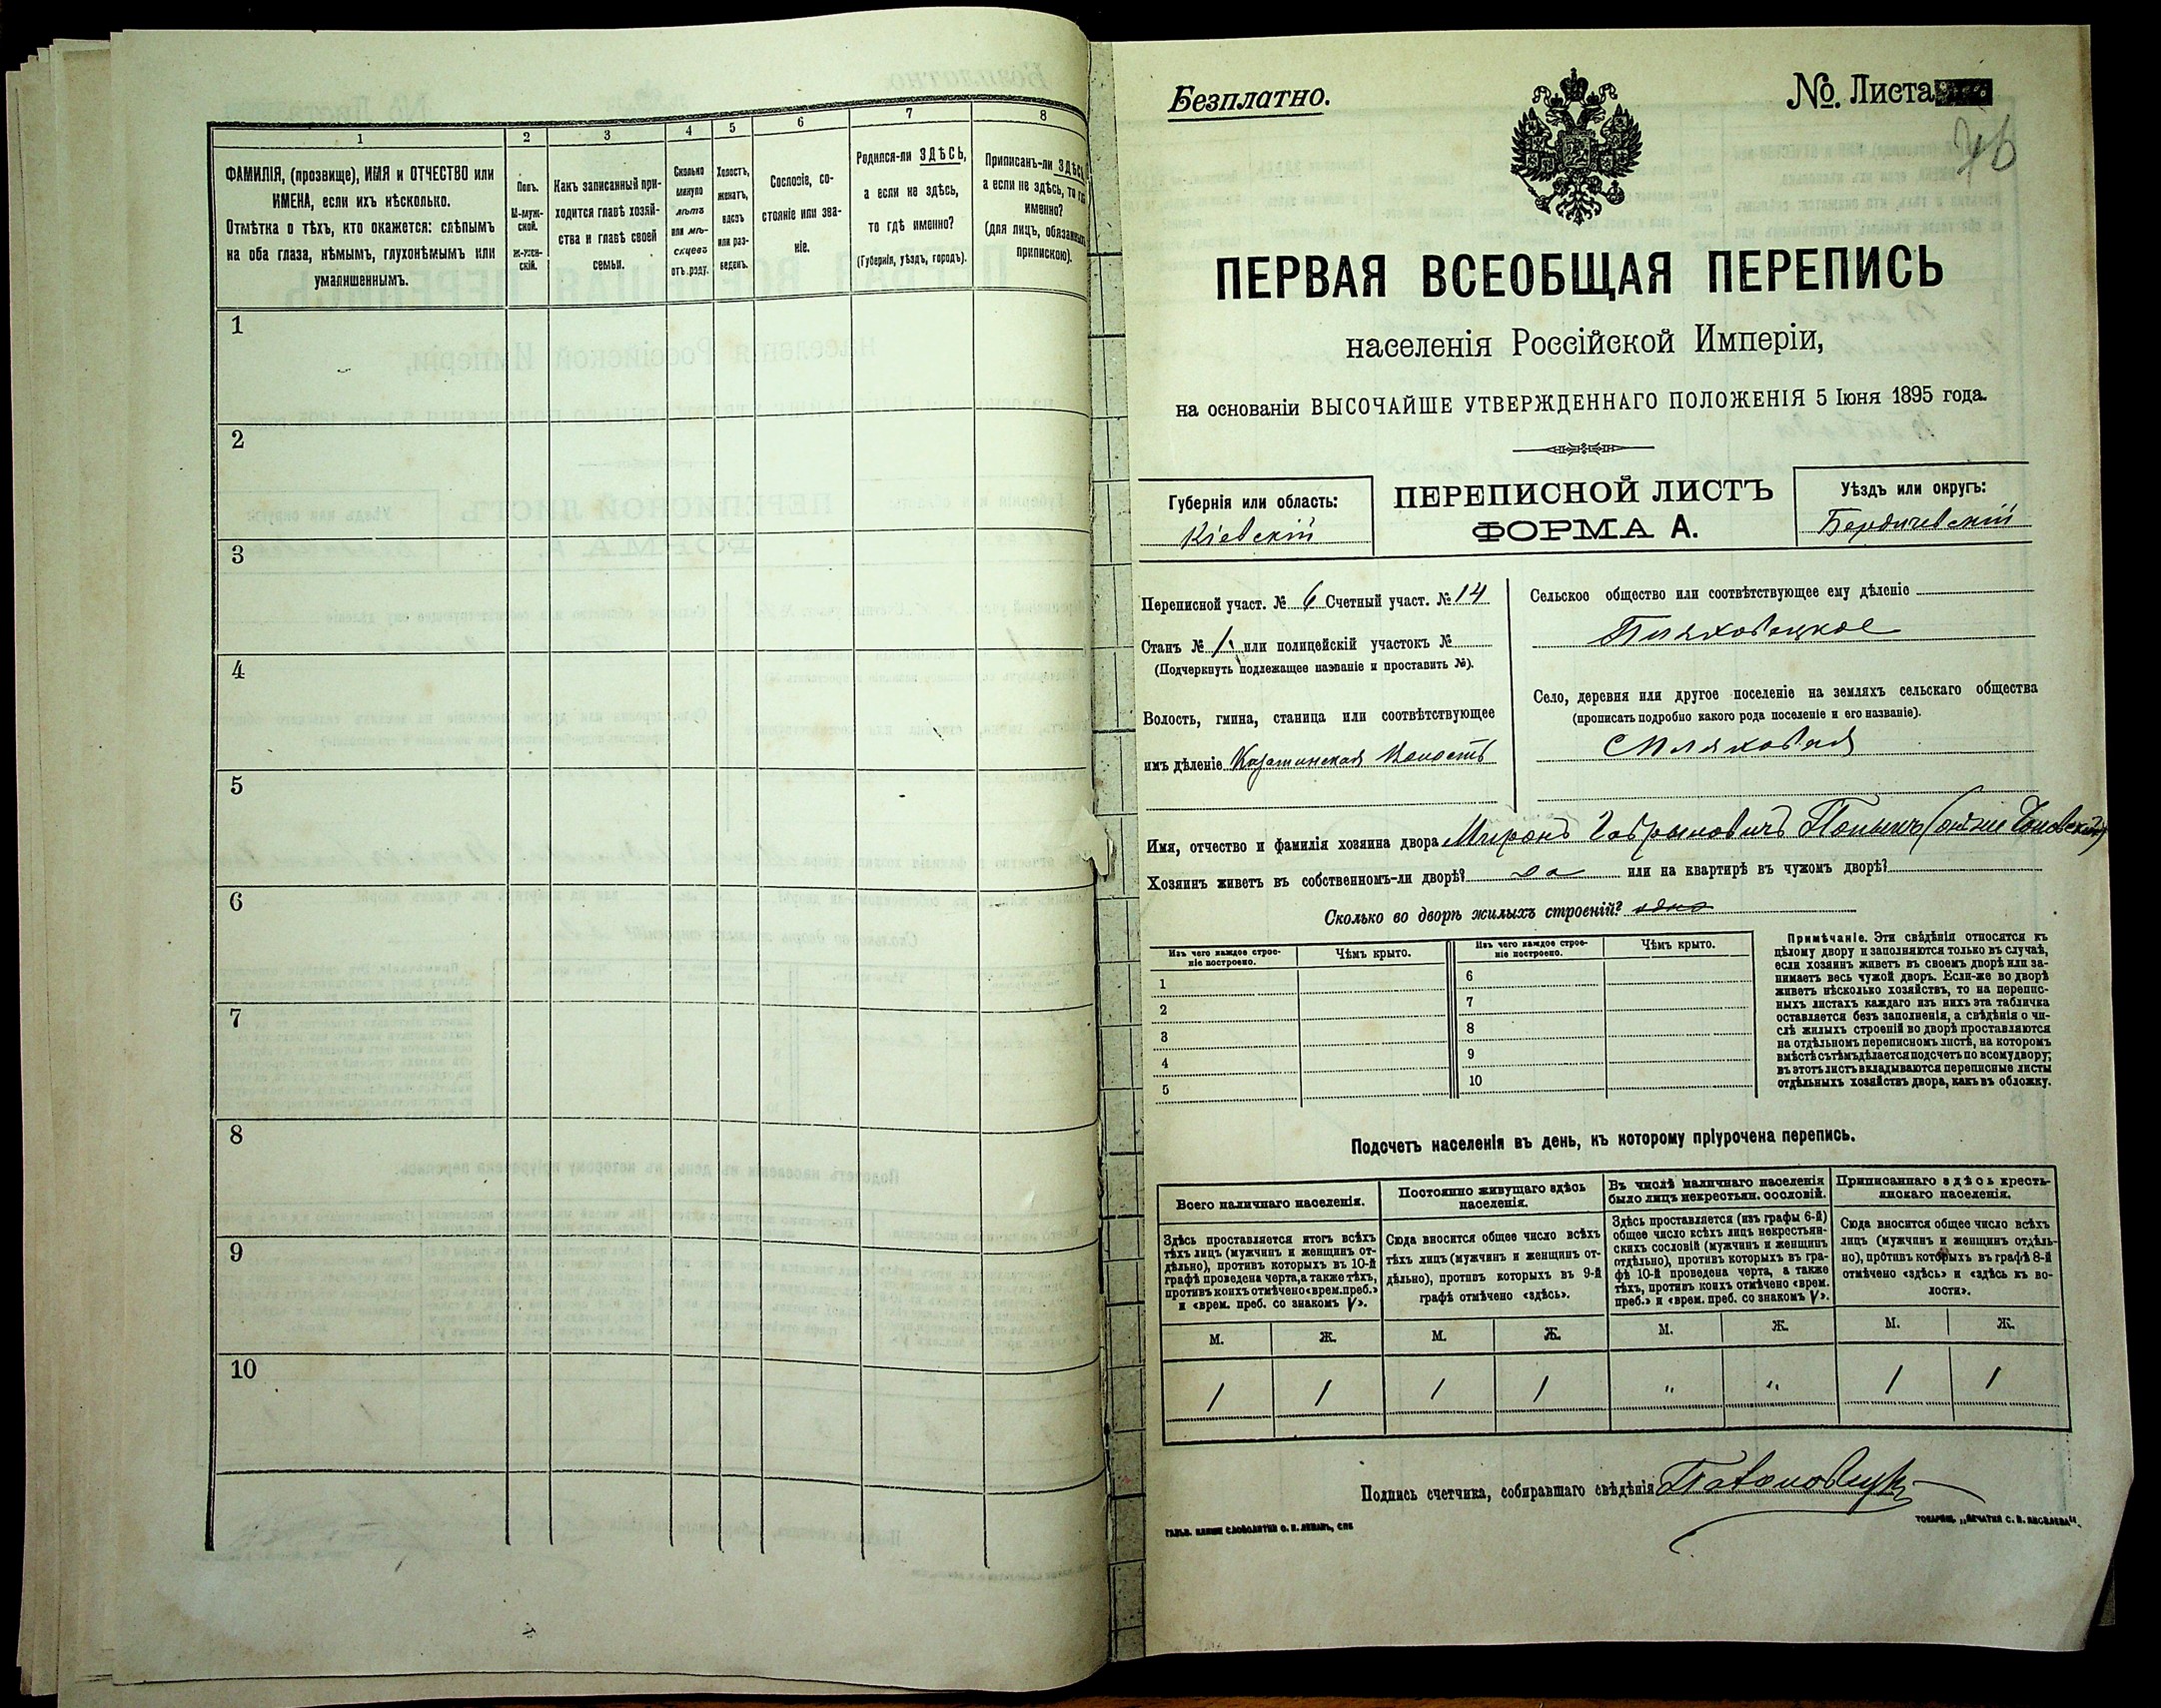 1
2
3
4
5
6
7
8
ФАМИЛІЯ, (прозвище), ИМЯ и ОТЧЕСТВО или
ИМЕНА, если ихъ нѣсколько.
Отмѣтка о тѣхъ, кто окажется: слѣпымъ
на оба глаза, нѣмымъ, глухонѣмымъ или
умалишеннымъ.
Полъ.
М-муж-
ской.
Ж-жен-
скій.
Какъ записанный при-
ходится главѣ хозяй-
ства и главѣ своей
семьи.
Сколько
минуло
лѣтъ
или мѣ-
сяцевъ
отъ роду.
Холостъ,
женатъ,
вдовъ
или раз-
веденъ.
Сословіе, со-
стояніе или зва-
ніе.
Родился-ли ЗДѢСЬ,
а если не здѣсь,
то гдѣ именно?
(Губернія, уѣздъ, городъ).
Приписанъ-ли ЗДѢСЬ,
а если не здѣсь, то гдѣ
именно?
(для лицъ, обязанныхъ
припискою).
1
2
3
4
5
6
7
8
9
10
Безплатно.
№. Листа
ПЕРВАЯ ВСЕОБЩАЯ ПЕРЕПИСЬ
населенія Россійской Имперіи,
на основаніи ВЫСОЧАЙШЕ УТВЕРЖДЕННАГО ПОЛОЖЕНІЯ 5 Іюня 1895 года.
Губернія или область:
Кіевскій
ПЕРЕПИСНОЙ ЛИСТЪ
ФОРМА А.
Уѣздъ или округъ:
Бердичевскій
Переписной участ. № 6 Счетный участ. № 14
Станъ № 1 или полицейскій участокъ №
(Подчеркнуть подлежащее названіе и проставить №).
Волость, гмина, станица или соотвѣтствующее
имъ дѣленіе Казатинская Волость
Сельское общество или соотвѣтствующее ему дѣленіе
Село, деревня или другое поселеніе на земляхъ сельскаго общества
(прописать подробно какого рода поселеніе и его названіе).
Имя, отчество и фамилія хозяина двора Миронъ
Хозяинъ живетъ въ собственномъ-ли дворѣ? да или на квартирѣ въ чужомъ дворѣ?
Сколько во дворѣ жилыхъ строеній? одно
Изъ чего каждое строе-
ніе построено.
Чѣмъ крыто.
Изъ чего каждое строе-
ніе построено.
Чѣмъ крыто.
1
2
3
4
5
6
7
8
9
10
Примѣчаніе. Эти свѣдѣнія относятся къ
цѣлому двору и заполняются только въ случаѣ,
если хозяинъ живетъ въ своемъ дворѣ или за-
нимаетъ весь чужой дворъ. Если-же во дворѣ
живетъ нѣсколько хозяйствъ, то на перепис-
ныхъ листахъ каждаго изъ нихъ эта табличка
оставляется безъ заполненія, а свѣдѣнія о чи-
слѣ жилыхъ строеній во дворѣ проставляются
на отдѣльномъ переписномъ листѣ, на которомъ
вмѣстѣ съ тѣмъ дѣлается подсчетъ по всему двору;
въ этотъ листъ вкладываются переписные листы
отдѣльныхъ хозяйствъ двора, какъ въ обложку.
Подсчетъ населенія въ день, къ которому пріурочена перепись.
Всего наличнаго населенія.
Постоянно живущаго здѣсь
населенія.
Въ числѣ наличнаго населенія
было лицъ некрестьян. сословій.
Приписаннаго здѣсь кресть-
янскаго населенія.
Здѣсь проставляется итогъ всѣхъ
тѣхъ лицъ (мужчинъ и женщинъ от-
дѣльно), противъ которыхъ въ 10-й
графѣ проведена черта, а также тѣхъ,
противъ коихъ отмѣчено «врем. преб.»
и «врем. преб. со знакомъ V».
Сюда вносится общее число всѣхъ
тѣхъ лицъ (мужчинъ и женщинъ от-
дѣльно), противъ которыхъ въ 9-й
графѣ отмѣчено «здѣсь».
Здѣсь проставляется (изъ графы 6-й)
общее число всѣхъ лицъ некрестьян-
скихъ сословій (мужчинъ и женщинъ
отдѣльно), противъ которыхъ въ гра-
фѣ 10-й проведена черта, а также
тѣхъ, противъ коихъ отмѣчено «врем.
преб.» и «врем. преб. со знакомъ V».
Сюда вносится общее число всѣхъ
лицъ (мужчинъ и женщинъ отдѣль-
но), противъ которыхъ въ графѣ 8-й
отмѣчено «здѣсь» и «здѣсь къ во-
лости».
М. Ж. М. Ж. М. Ж. М. Ж.
1 1 1 1 " " 1 1
Подпись счетчика, собиравшаго свѣдѣнія